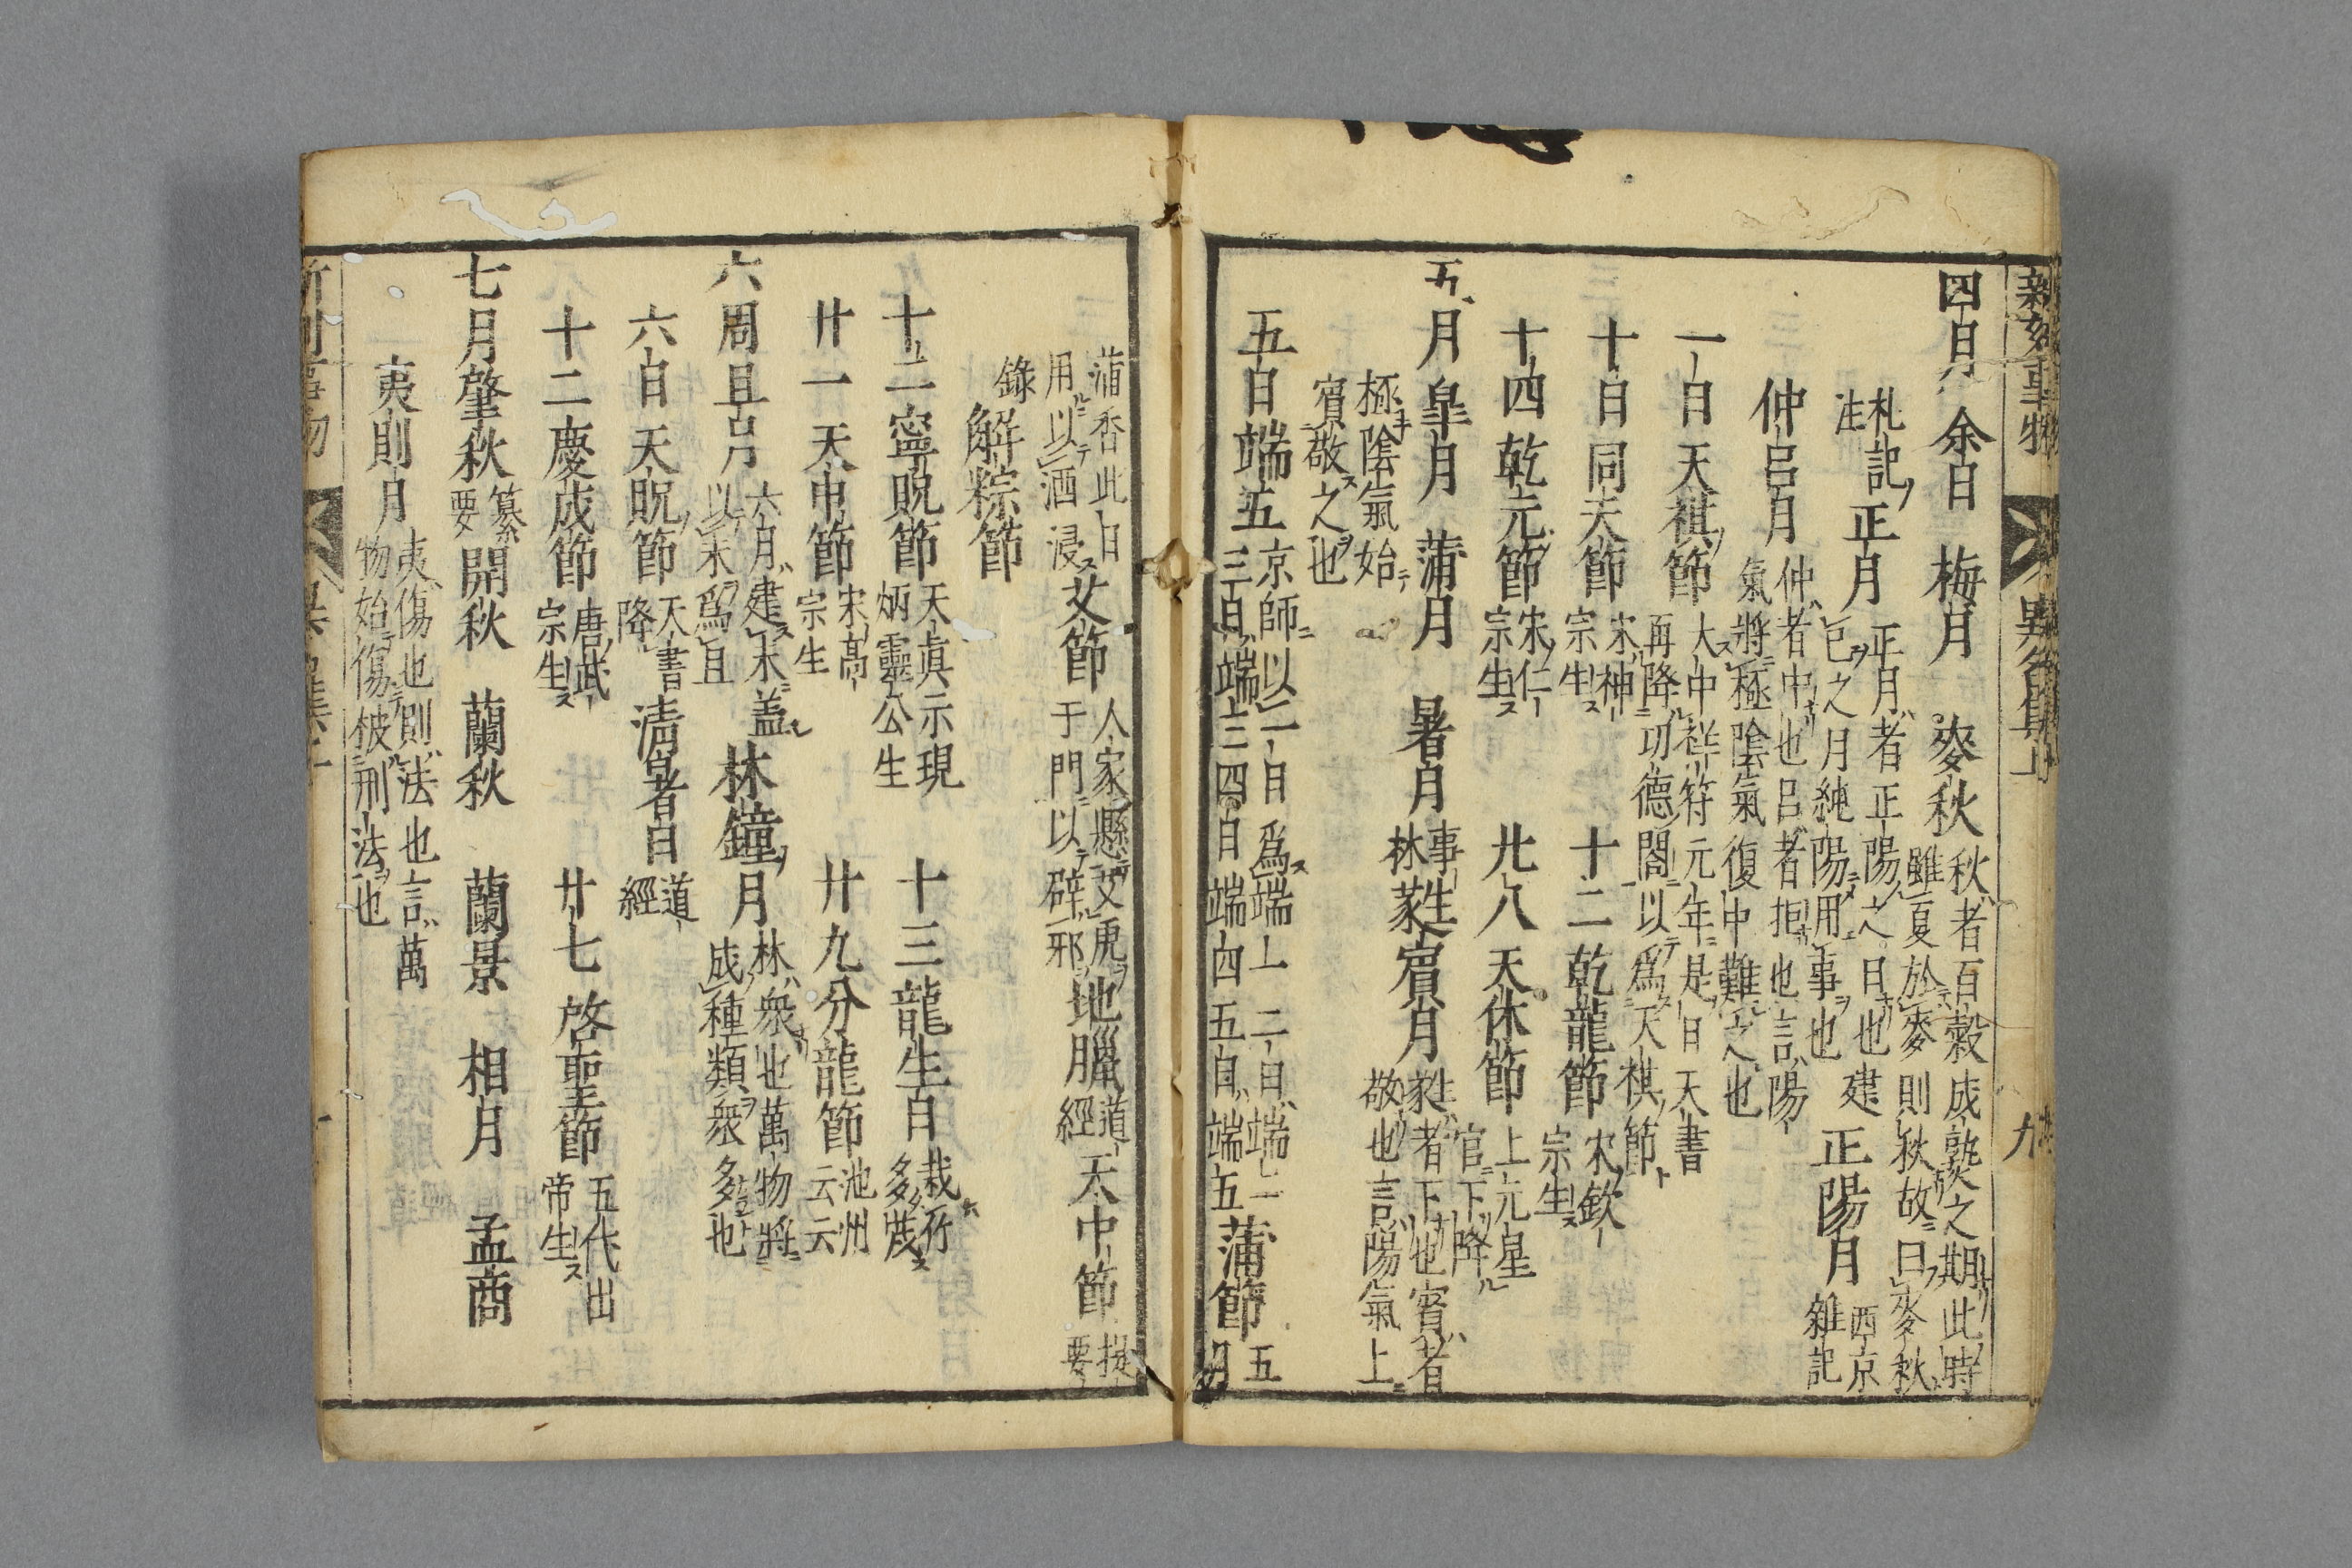 新刻事物 異名集上 九
四月 余月 梅月 麥秋 秋者百穀成熟之期此時
雖夏於麥則秋故曰麥秋
礼記
注 正月 正月者正陽之日也建
巳之月純陽用事也 正陽月 西京
雜記
仲呂月 仲者中也呂者拒也言陽
氣將極陰氣復中難之也
一日 天祺節 大中祥符元年是日天書
再降功德閣以爲天祺節
十日 同天節 宋神
宗生 十二 乾龍節 宋欽
宗生
十四 乾元節 宋仁
宗生 廿八 天休節 上元星
官下降
五月 皐月 蒲月 暑月 事
林 蕤賓月 蕤者下也賓者
敬也言陽氣上
極陰氣始
賓敬之也
五日 端五 京師以一日爲端一二日端二
三日端三四日端四五日端五 蒲節 五
月
蒲香此日
用以酒浸 艾節 人家懸艾虎
于門以辟邪 地臘 道
經 天中節 提
要
錄 解粽節
十二 寧貺節 天真示現
炳靈公生 十三 龍生日 栽竹
多茂
廿一 天申節 宋高
宗生 廿九 分龍節 池州
云云
六周 且月 六月建未蓋
以未爲且 林鐘月 林衆也萬物將
成種類衆多也
六日 天貺節 天書
降 清暑日 道
經
十二 慶成節 唐武
宗生 廿七 啓聖節 五代出
帝生
七月 肇秋 纂
要 開秋 蘭秋 蘭景 相月 孟商
夷則月 夷傷也則法也言萬
物始傷被刑法也